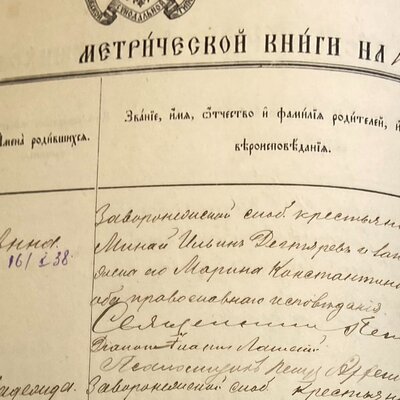 МЕТРИ́ЧЕСКОЙ КНИ́ГИ НА
Имена̀ роди́вшихсѧ.
Зва́нїе, и́мѧ, ѻ҆́тчество и҆ фами́лїѧ роди́телей, и҆
вѣроисповѣ́данїѧ.
Заворонежской слоб. крестьян
Минай Ильин Дегтярев и зак
Анна
жена его Марина Константино
16/I 38.
оба православнаго исповедания
Священник Пет
Диакон
Псаломщик
Заворонежской слоб. крестьян